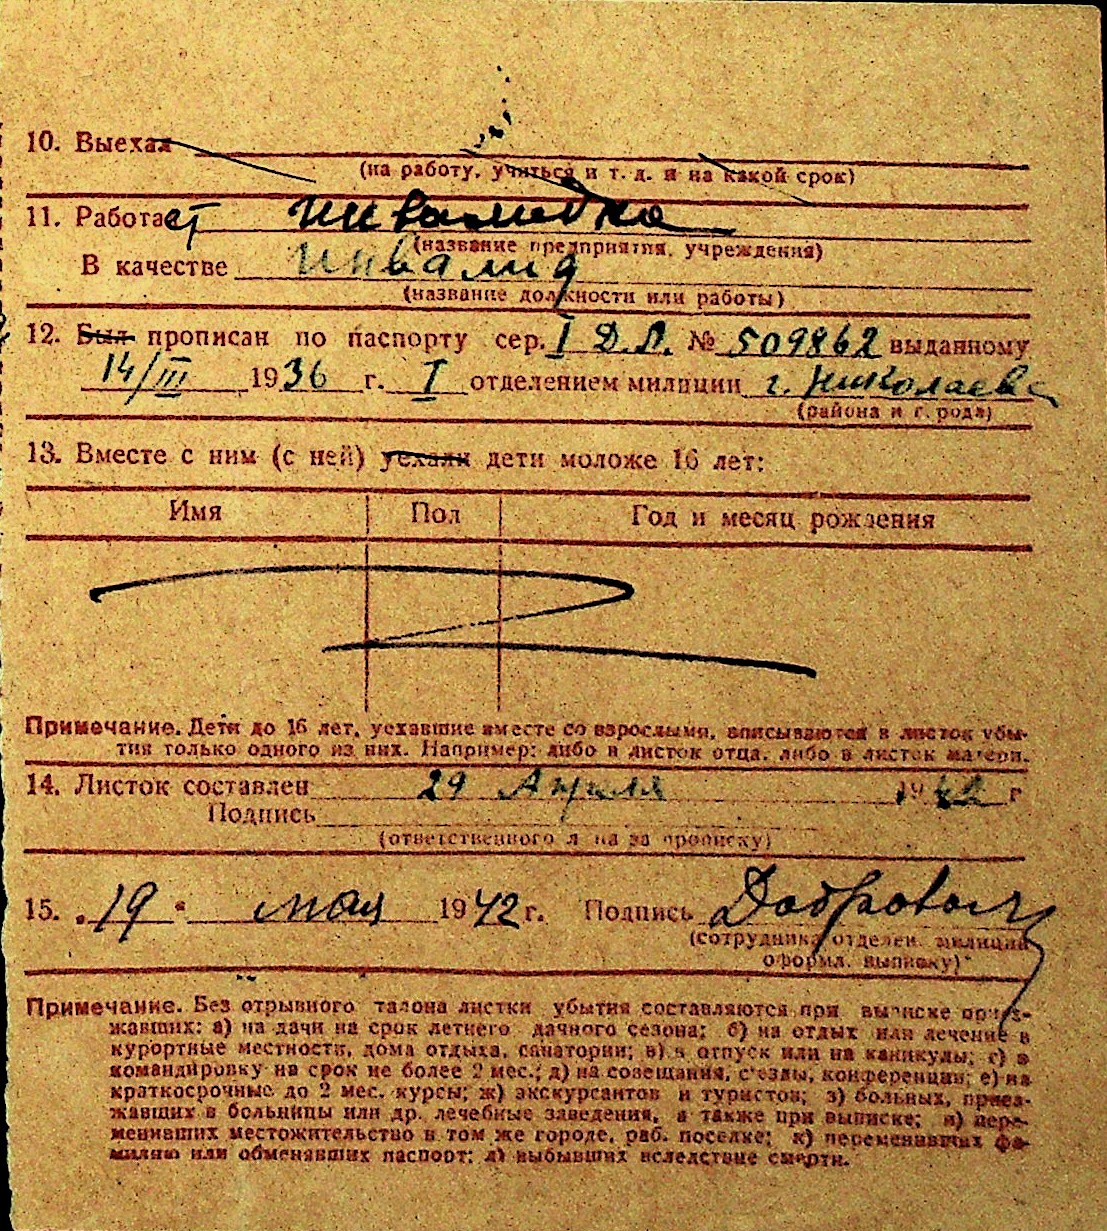 10. Выехал
(на работу, учиться и т. д. и на какой срок)
11. Работает инвалидка
(название предприятия, учреждения)
В качестве инвалид
(название должности или работы)
12. Был прописан по паспорту сер. I Д.Л. № 509862 выданному
14/III 1936 г. I отделением милиции г. Николаева
(района и г. рода)
13. Вместе с ним (с ней) уехали дети моложе 16 лет:
Имя Пол Год и месяц рождения
Примечание. Дети до 16 лет, уехавшие вместе со взрослыми, вписываются в листок убы-
тия только одного из них. Например: либо в листок отца, либо в листок матери.
14. Листок составлен 29 Апреля 1942 г
Подпись
(ответственного л на за прописку)
15. „19" мая 1942 г. Подпись
(сотрудника отделен. милиции
оформл. выписку)
Примечание. Без отрывного талона листки убытия составляются при выписке приез-
жавших: а) на дачи на срок летнего дачного сезона; б) на отдых или лечение в
курортные местности, дома отдыха, санатории; в) в отпуск или на каникулы; г) в
командировку на срок не более 2 мес.; д) на совещания, с'езды, конференции; е) на
краткосрочные до 2 мес. курсы; ж) экскурсантов и туристов; з) больных, приез-
жавших в больницы или др. лечебные заведения, а также при выписке; и) пере-
менивших местожительство в том же городе, раб. поселке; к) переменивших фа-
милию или обменявших паспорт; л) выбывших вследствие смерти.